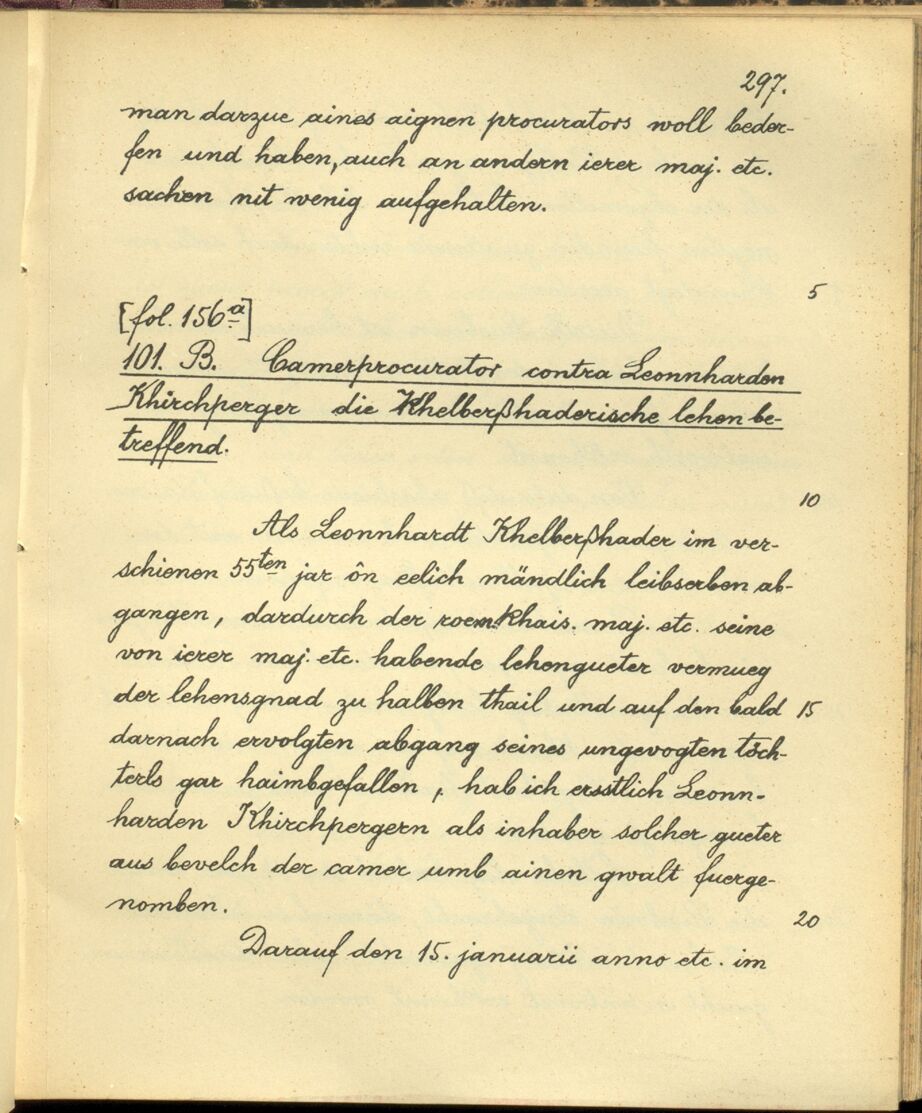 297.
man darzue aines aignen procurators woll beder-
fen und haben, auch an andern ierer maj. etc.
sachen nit wenig aufgehalten.
5
[fol. 156a]
101. B. Camerprocurator contra Leonnharden
Khirchperger die Khelberßhaderische lehen be-
treffend.
10
Als Leonnhardt Khelberßhader im ver-
schienen 55ten jar ôn eelich mändlich leibserben ab-
gangen, dardurch der roem. Khais. maj. etc. seine
von ierer maj. etc. habende lehengueter vermueg
der lehensgnad zu halben thail und auf den bald 15
darnach ervolgten abgang seines ungevogten töch-
terls gar haimbgefallen, hab ich ersstlich Leonn-
harden Khirchpergern als inhaber solcher gueter
aus bevelch der camer umb ainen gwalt fuerge-
nomben.
20
Darauf den 15. januarii anno etc. im